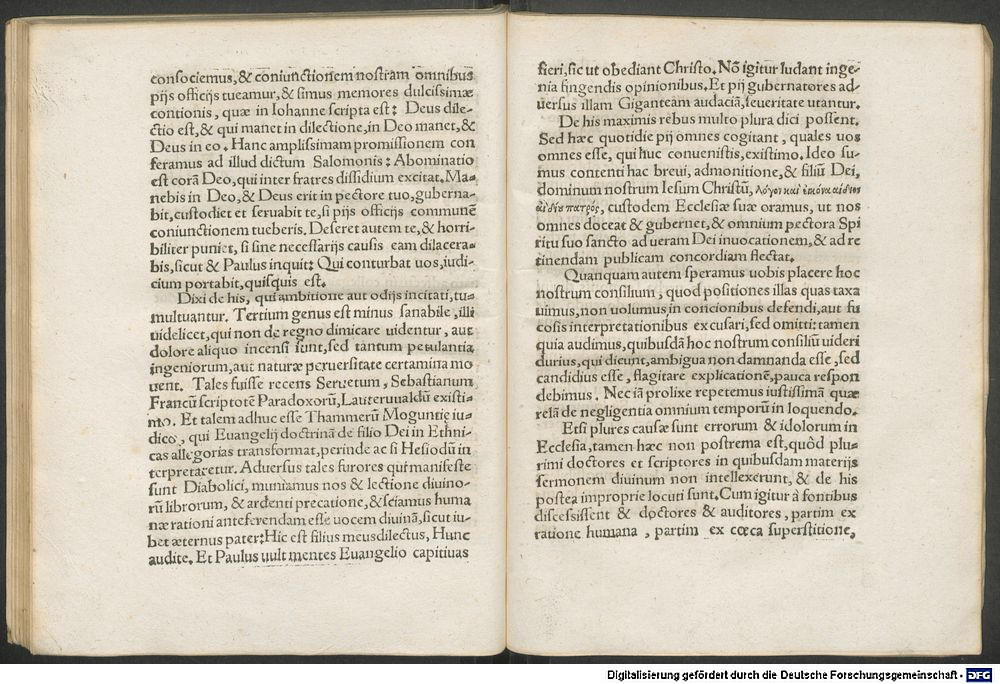 consociemus,& coniunctionem nostram omnibus
pijs officijs tueamur,& simus memores dulcissimæ
contionis, quæ in Iohanne scripta est: Deus dile-
ctio est,& qui manet in dilectione,in Deo manet,&
Deus in eo. Hanc amplissimam promissionem con
feramus ad illud dictum Salomonis: Abominatio
est corā Deo,qui inter fratres dissidium excitat. Ma-
nebis in Deo,& Deus erit in pectore tuo,guberna-
bit,custodiet et seruabit te,si pijs officijs communē
coniunctionem tueberis. Deseret autem te,& horri-
biliter puniet, si sine necessarijs causis eam dilacera-
bis,sicut & Paulus inquit: Qui conturbat uos,iudi-
cium portabit,quisquis est.
Dixi de his, qui ambitione aut odijs incitati,tu-
multuantur. Tertium genus est minus sanabile, illi
uidelicet,qui non de regno dimicare uidentur, aut
dolore aliquo incensi sunt,sed tantum petulantia
ingeniorum,aut naturæ peruersitate certamina mo
uent. Tales fuisse recens Seruetum, Sebastianum
Francū scriptorē Paradoxorū, Lauteruualdū existi-
mo. Et talem adhuc esse Thammerū Moguntię iu-
dico, qui Euangelij doctrinā de filio Dei in Ethni-
cas allegorias transformat,perinde ac si Hesiodū in
terpretaretur. Aduersus tales furores qui manifeste
sunt Diabolici, muniamus nos & lectione diuino-
rū librorum, & ardenti precatione,& sciamus huma
næ rationi anteferendam esse uocem diuinā,sicut iu-
bet æternus pater:Hic est filius meus dilectus, Hunc
audite. Et Paulus uult mentes Euangelio captiuas
fieri,sic ut obediant Christo. Nō igitur ludant inge-
nia fingendis opinionibus.Et pij gubernatores ad-
uersus illam Giganteam audaciā,seueritate utantur.
De his maximis rebus multo plura dici possent.
Sed hæc quotidie pij omnes cogitant, quales uos
omnes esse, qui huc conuenistis,existimo. Ideo su-
mus contenti hac breui, admonitione,& filiū Dei,
dominum nostrum Iesum Christū, λόγον καὶ ἐικόνα αἰδίου
ἀϊδίου πατρός, custodem Ecclesiæ suæ oramus, ut nos
omnes doceat & gubernet,& omnium pectora Spi
ritu suo sancto ad ueram Dei inuocationem,& ad re
tinendam publicam concordiam flectat.
Quanquam autem speramus uobis placere hoc
nostrum consilium, quod positiones illas quas taxa
uimus,non uolumus in concionibus defendi,aut fu
cosis interpretationibus excusari,sed omitti: tamen
quia audimus,quibusdā hoc nostrum consiliū uideri
durius,qui dicunt,ambigua non damnanda esse, sed
candidius esse, flagitare explicationē,pauca respon
debimus. Nec iā prolixe repetemus iustissimā quæ
relā de negligentia omnium temporū in loquendo.
Etsi plures causæ sunt errorum & idolorum in
Ecclesia,tamen hæc non postrema est,quòd plu-
rimi doctores et scriptores in quibusdam materijs
sermonem diuinum non intellexerunt, & de his
postea improprie locuti sunt.Cum igitur à fontibus
discessissent & doctores & auditores, partim ex
ratione humana, partim ex cœca superstitione,
Digitalisierung gefördert durch die Deutsche Forschungsgemeinschaft - DFG